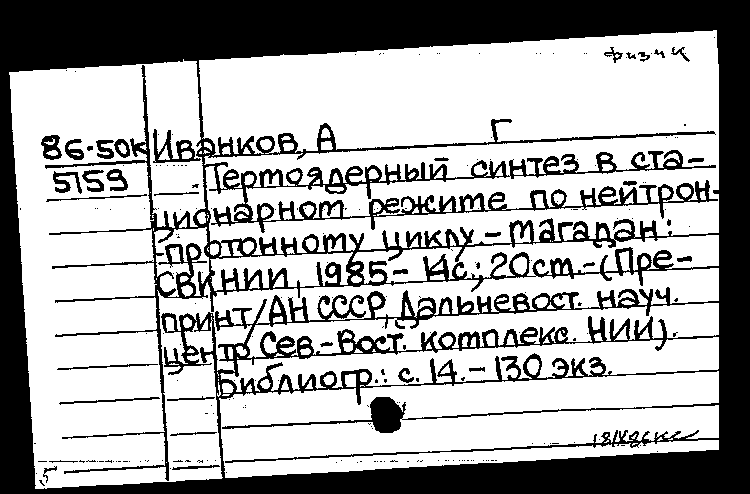 физик
86-50к Иванков, А Г
5159 Термоядерный синтез в ста-
ционарном режиме по нейтрон-
-протонному циклу.- Магадан:
СВКНИИ, 1985.- 14с.; 20см.-(Пре-
принт/АН СССР, Дальневост. науч.
центр, Сев.-Вост. комплекс. НИИ).
Библиогр.: с. 14.- 130 экз.
5